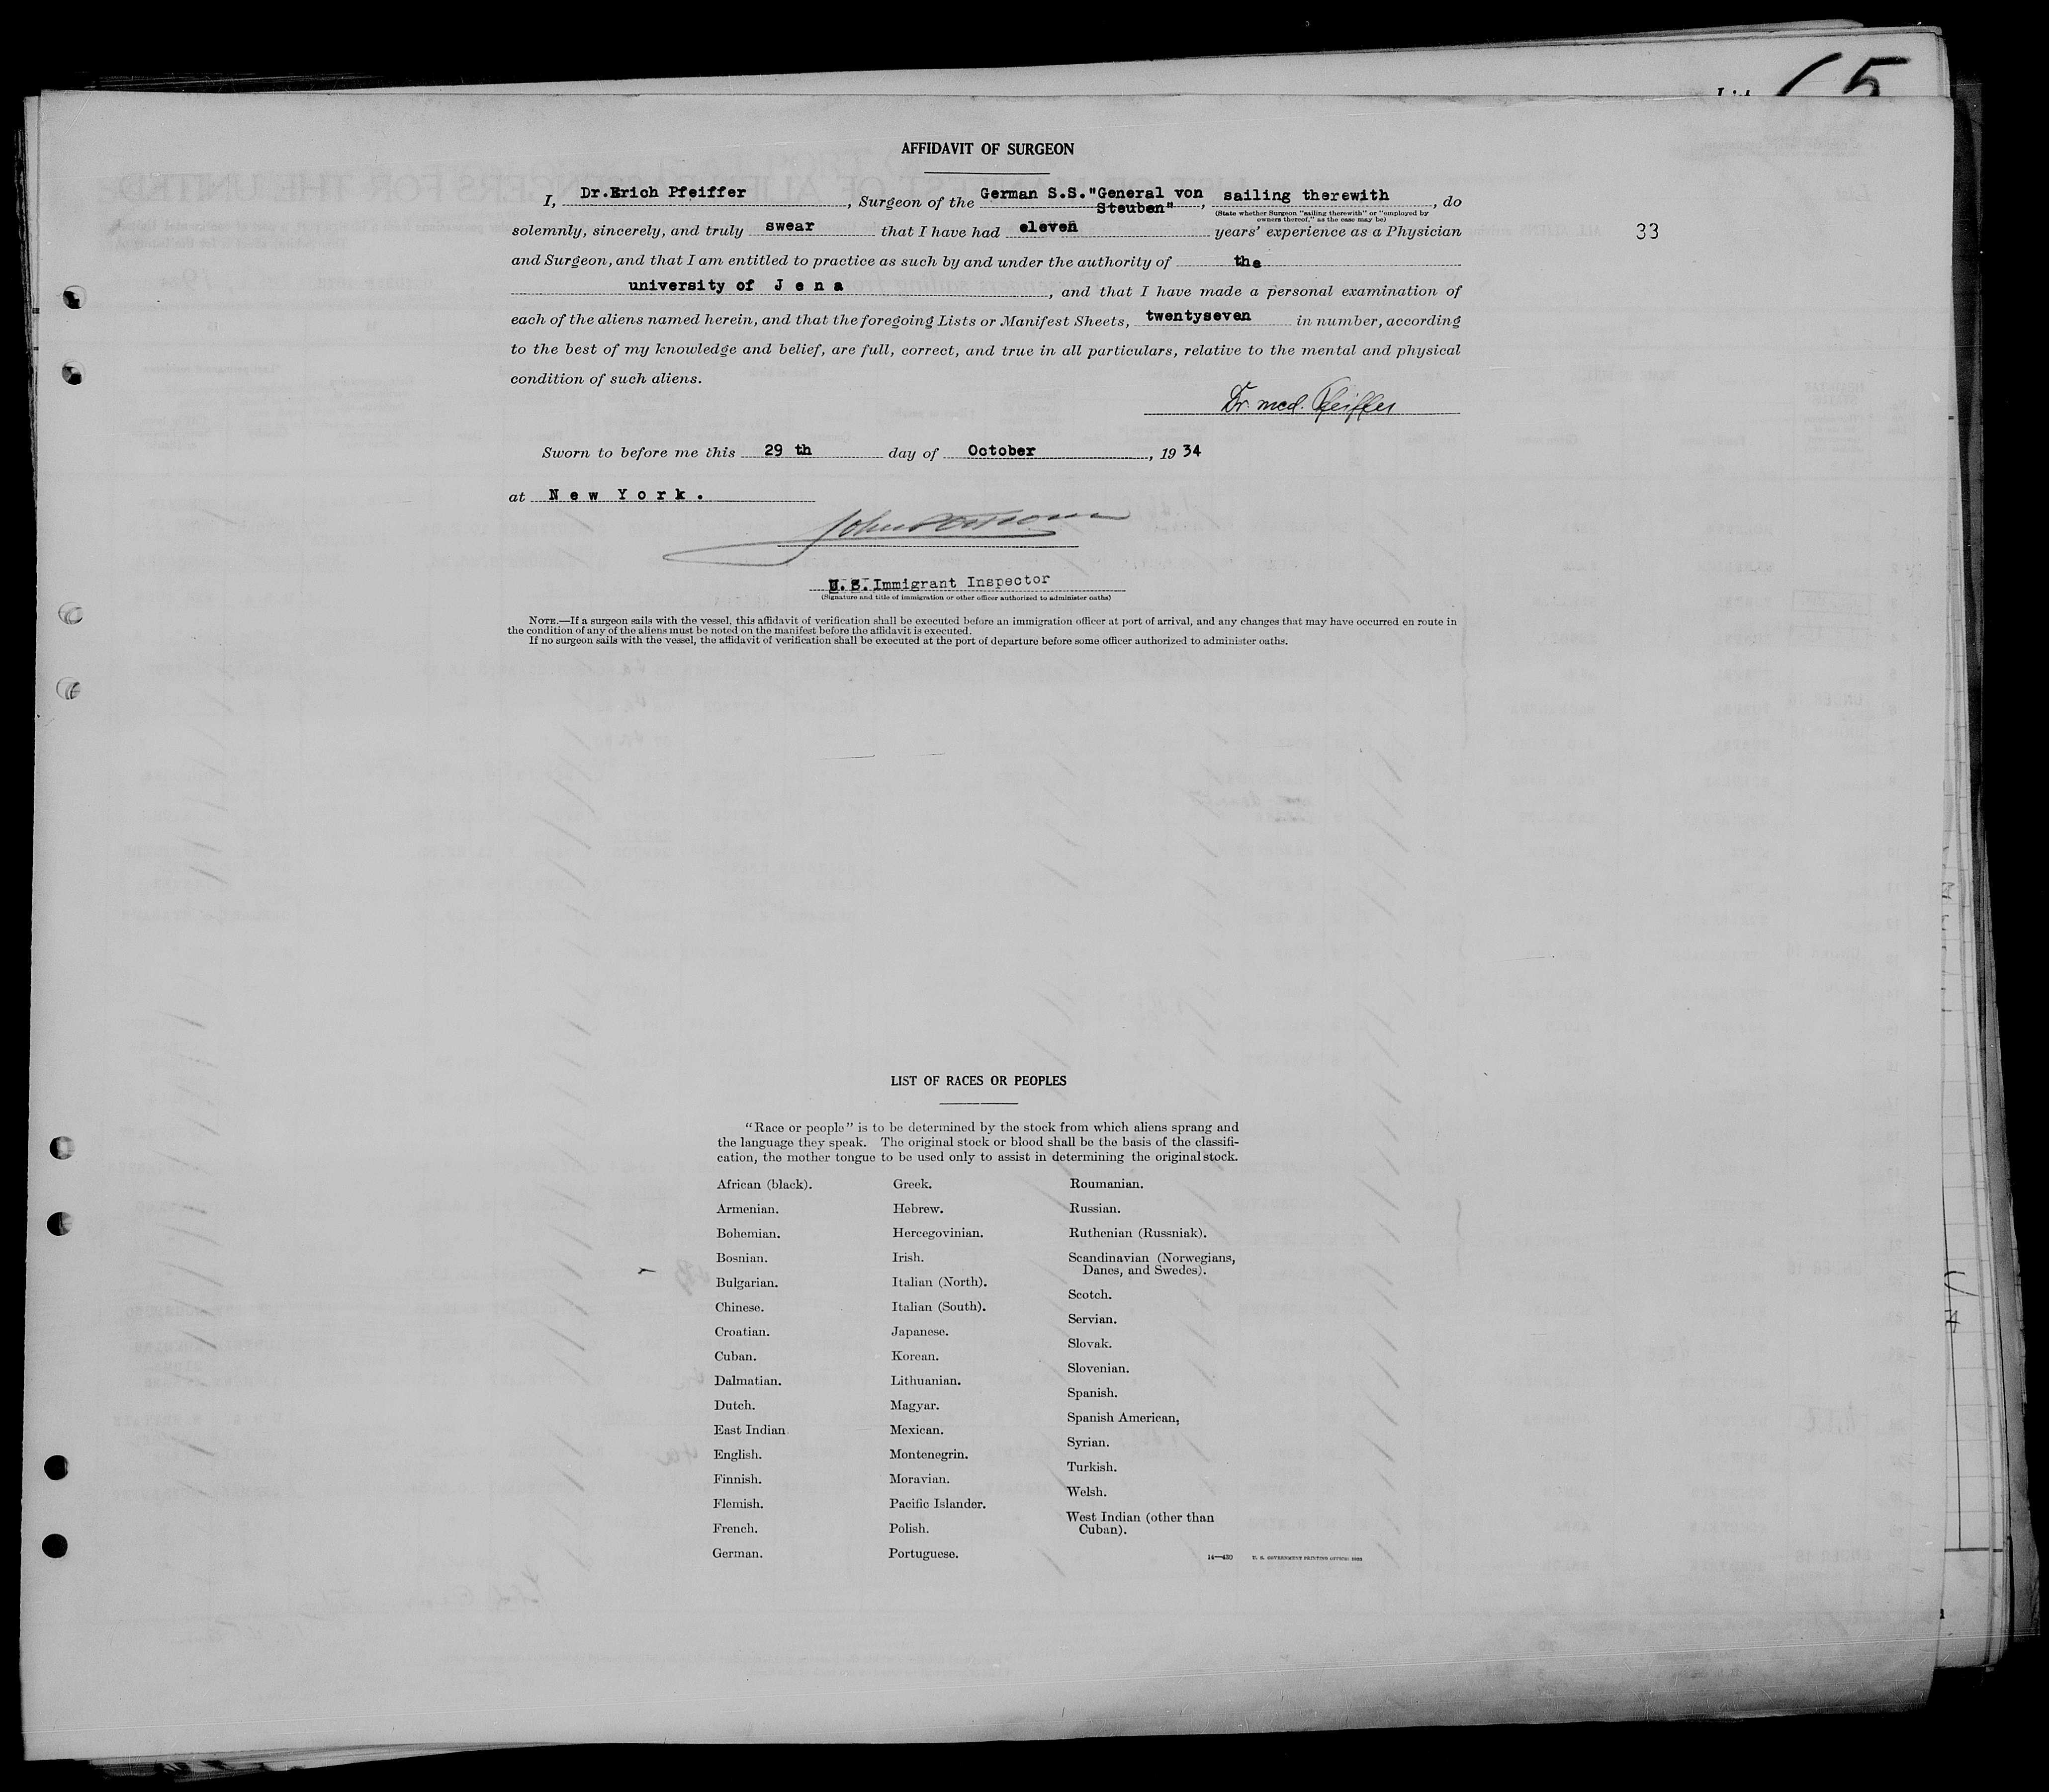 AFFIDAVIT OF SURGEON
I, Dr.Erich Pfeiffer, Surgeon of the German S.S."General von Steuben", sailing therewith, do
(State whether Surgeon "sailing therewith" or "employed by owners thereof," as the case may be)
solemnly, sincerely, and truly swear that I have had eleven years' experience as a Physician
33
and Surgeon, and that I am entitled to practice as such by and under the authority of the
university of J e n a, and that I have made a personal examination of
each of the aliens named herein, and that the foregoing Lists or Manifest Sheets, twentyseven in number, according
to the best of my knowledge and belief, are full, correct, and true in all particulars, relative to the mental and physical
condition of such aliens.
Dr. med. Pfeiffer
Sworn to before me this 29 th day of October, 19 34
at N e w Y o r k .
U. S. Immigrant Inspector
(Signature and title of immigration or other officer authorized to administer oaths)
NOTE.—If a surgeon sails with the vessel, this affidavit of verification shall be executed before an immigration officer at port of arrival, and any changes that may have occurred en route in
the condition of any of the aliens must be noted on the manifest before the affidavit is executed.
If no surgeon sails with the vessel, the affidavit of verification shall be executed at the port of departure before some officer authorized to administer oaths.
LIST OF RACES OR PEOPLES
"Race or people" is to be determined by the stock from which aliens sprang and
the language they speak. The original stock or blood shall be the basis of the classifi-
cation, the mother tongue to be used only to assist in determining the original stock.
African (black).
Armenian.
Bohemian.
Bosnian.
Bulgarian.
Chinese.
Croatian.
Cuban.
Dalmatian.
Dutch.
East Indian
English.
Finnish.
Flemish.
French.
German.
Greek.
Hebrew.
Hercegovinian.
Irish.
Italian (North).
Italian (South).
Japanese.
Korean.
Lithuanian.
Magyar.
Mexican.
Montenegrin.
Moravian.
Pacific Islander.
Polish.
Portuguese.
Roumanian.
Russian.
Ruthenian (Russniak).
Scandinavian (Norwegians,
Danes, and Swedes).
Scotch.
Servian.
Slovak.
Slovenian.
Spanish.
Spanish American,
Syrian.
Turkish.
Welsh.
West Indian (other than
Cuban).
14—430 U. S. GOVERNMENT PRINTING OFFICE: